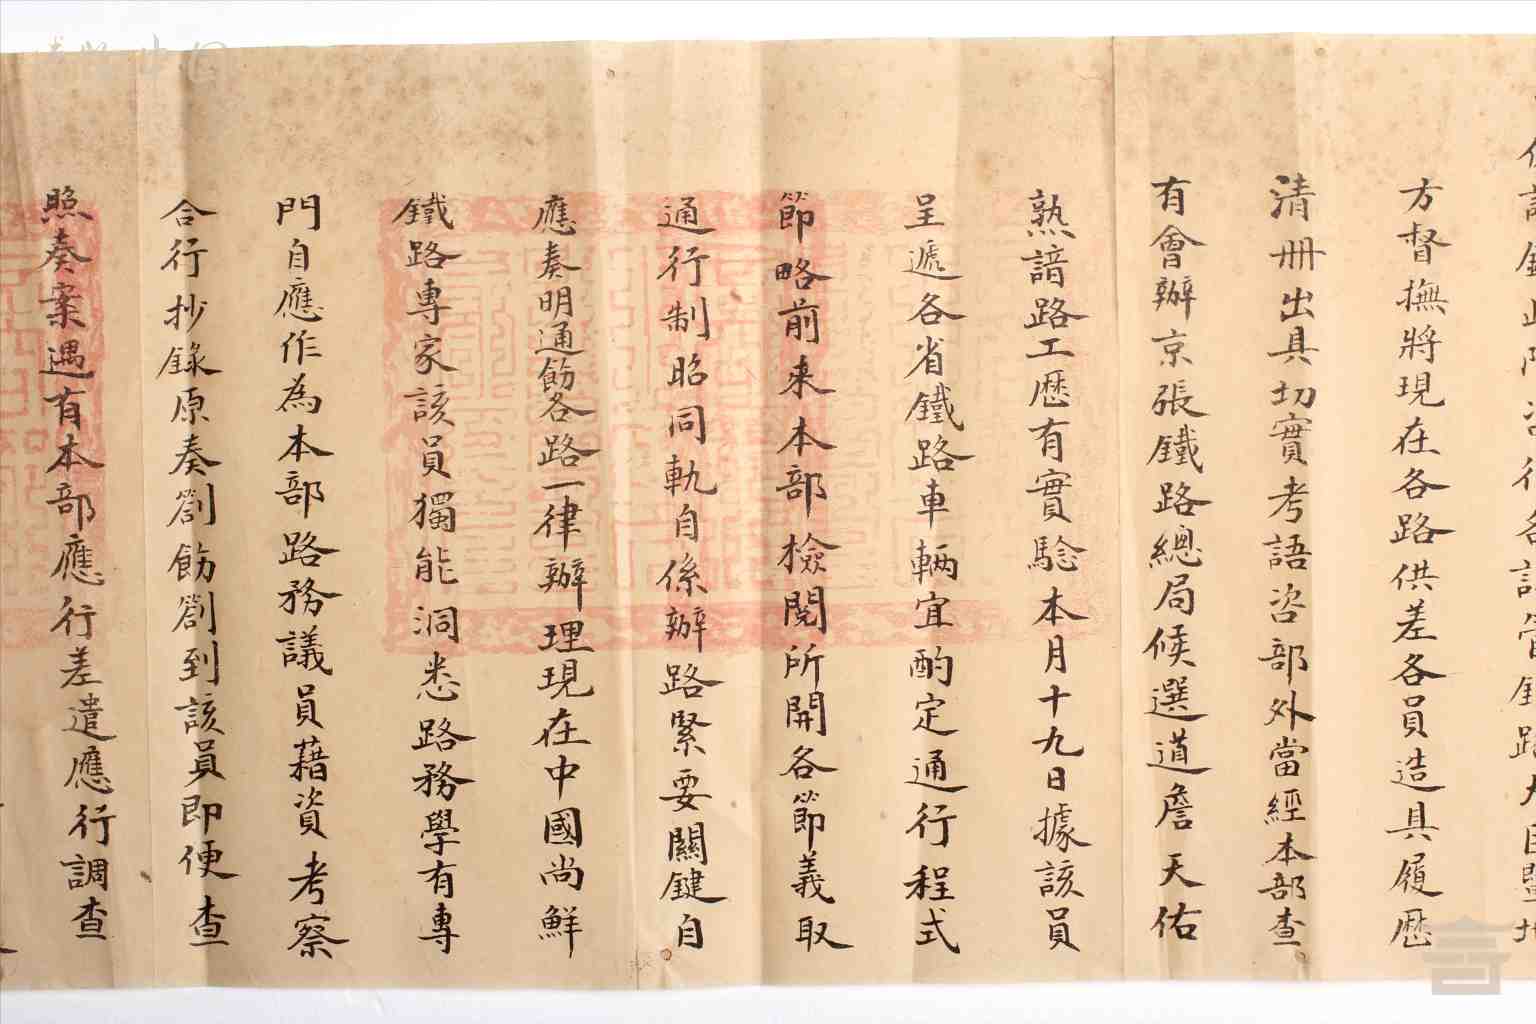 方督撫將現在各路供差各員造具履歷
清冊出具切實考語咨部外當經本部查
有會辦京張鐵路總局候選道詹天佑
熟諳路工歷有實驗本月十九日據該員
呈遞各省鐵路車輛宜酌定通行程式
節略前来本部檢閱所開各節義取
通行制昭同軌自係辦路緊要關鍵自
應奏明通飭各路一律辦理現在中國尚鮮
鐵路專家該員獨能洞悉路務學有專
門自應作為本部路務議員藉資考察
合行抄錄原奏劄飭劄到該員即便查
照奏案遇有本部應行差遣應行調查